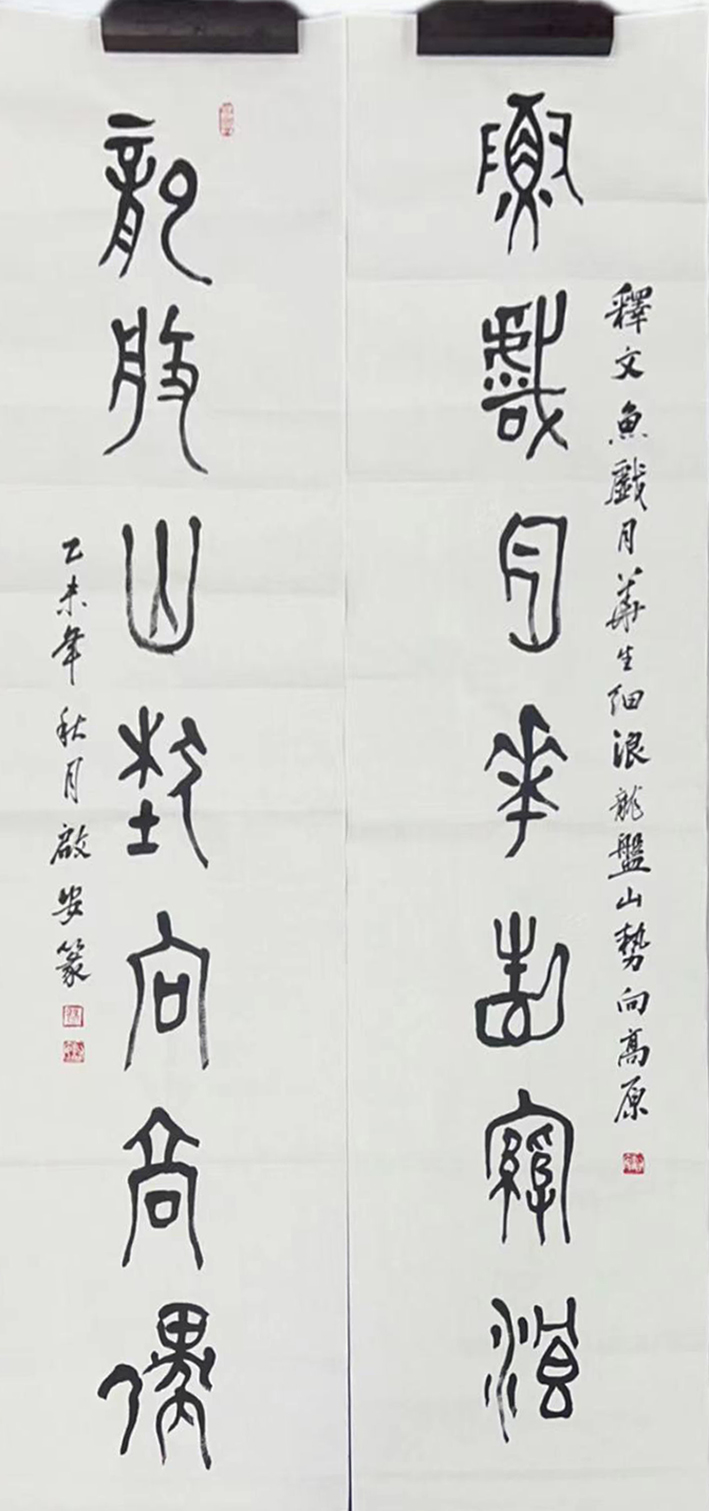 釋文魚戲月華生細浪龍盤山勢向高原
魚戲月華生細浪
龍盤山勢向高原
乙未年秋月啟安篆